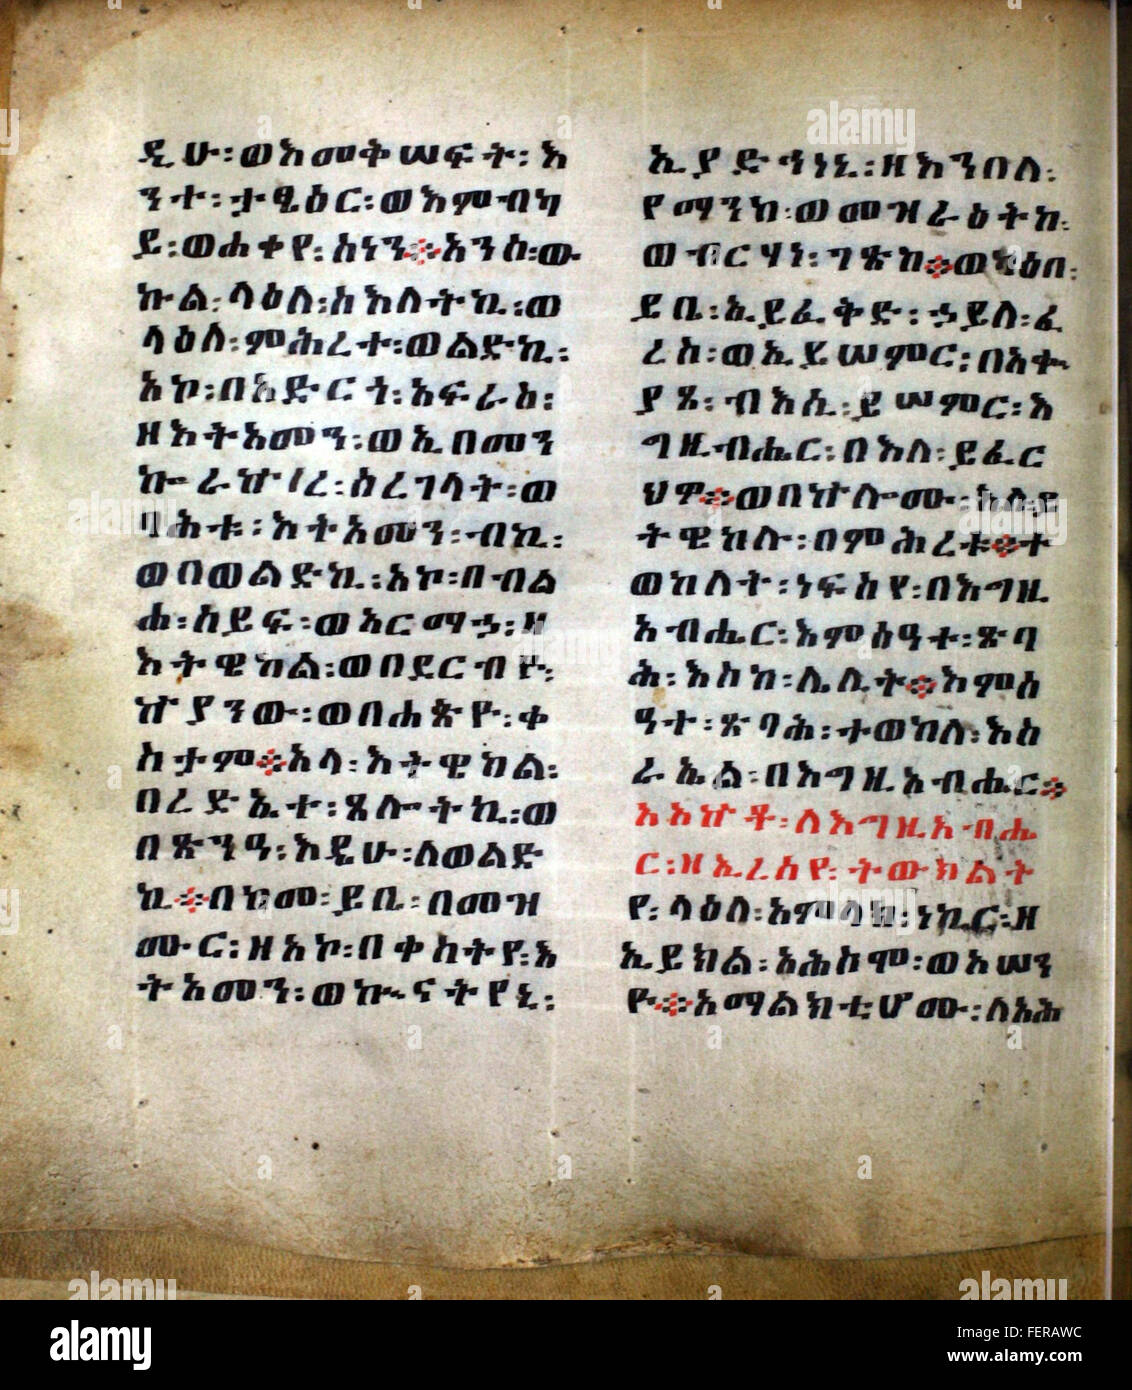 ዲሁ፡ወእመቅሠፍት፡እ
ንተ፡ታፄዕር፡ወእምብካ
ይ፡ወሐቀየ፡ስነን፨አንሰ፡ው
ኩል፡ላዕለ፡ስእለትኪ፡ወ
ላዕለ፡ምሕረተ፡ወልድኪ፡
አኮ፡በአድርጎ፡አፍራስ፡
ዘእትአመን፡ወኢበመን
ኰራኵረ፡ሰረገላት፡ወ
ባሕቱ፡እትአመን፡ብኪ፡
ወበወልድኪ፡አኮ፡በብል
ሐ፡ሰይፍ፡ወኣርማኃ፡ዘ
እትዌከል፡ወበደርብየ፡
ኵያንው፡ወበሐጽዮ፡ቀ
ስታም፨አላ፡እትዌከል፡
በረድኤተ፡ጸሎትኪ፡ወ
በጽንዓ፡እዲሁ፡ለወልድ
ኪ፨በከመ፡ይቤ፡በመዝ
ሙር፡ዘአኮ፡በቀስትየ፡እ
ትአመን፡ወኲናትየኒ፡
ኢያድኅነኒ፡ዘእንበለ፡
የማንከ፡ወመዝራዕትከ፡
ወብርሃነ፡ገጽከ፨ወካዕበ፡
ይቤ፡ኢይፈቅድ፡ኃይለ፡ፈ
ረስ፡ወኢይሠምር፡በአቍ
ያጸ፡ብእሲ፡ይሠምር፡እ
ግዚብሔር፡በእለ፡ይፈር
ህዎ፨ወበኵሎሙ፡እለይ
ትዌከሉ፡በምሕረቱ፨ተ
ወከለት፡ነፍስየ፡በእግዚ
አብሔር፡እምሰዓተ፡ጽባ
ሕ፡እስከ፡ሌሊት፨እምሰ
ዓተ፡ጽባሕ፡ተወከለ፡እስ
ራኤል፡በእግዚአብሔር፨
እአኵቶ፡ለእግዚአብሔ
ር፡ዘኢረሰየ፡ትውክልት
የ፡ላዕለ፡አምላክ፡ነኪር፡ዘ
ኢይክል፡አሕስሞ፡ወአሠን
ዮ፨አማልክቲሆሙ፡ለአሕ
alamy
Image ID: FERAWC
www.alamy.com